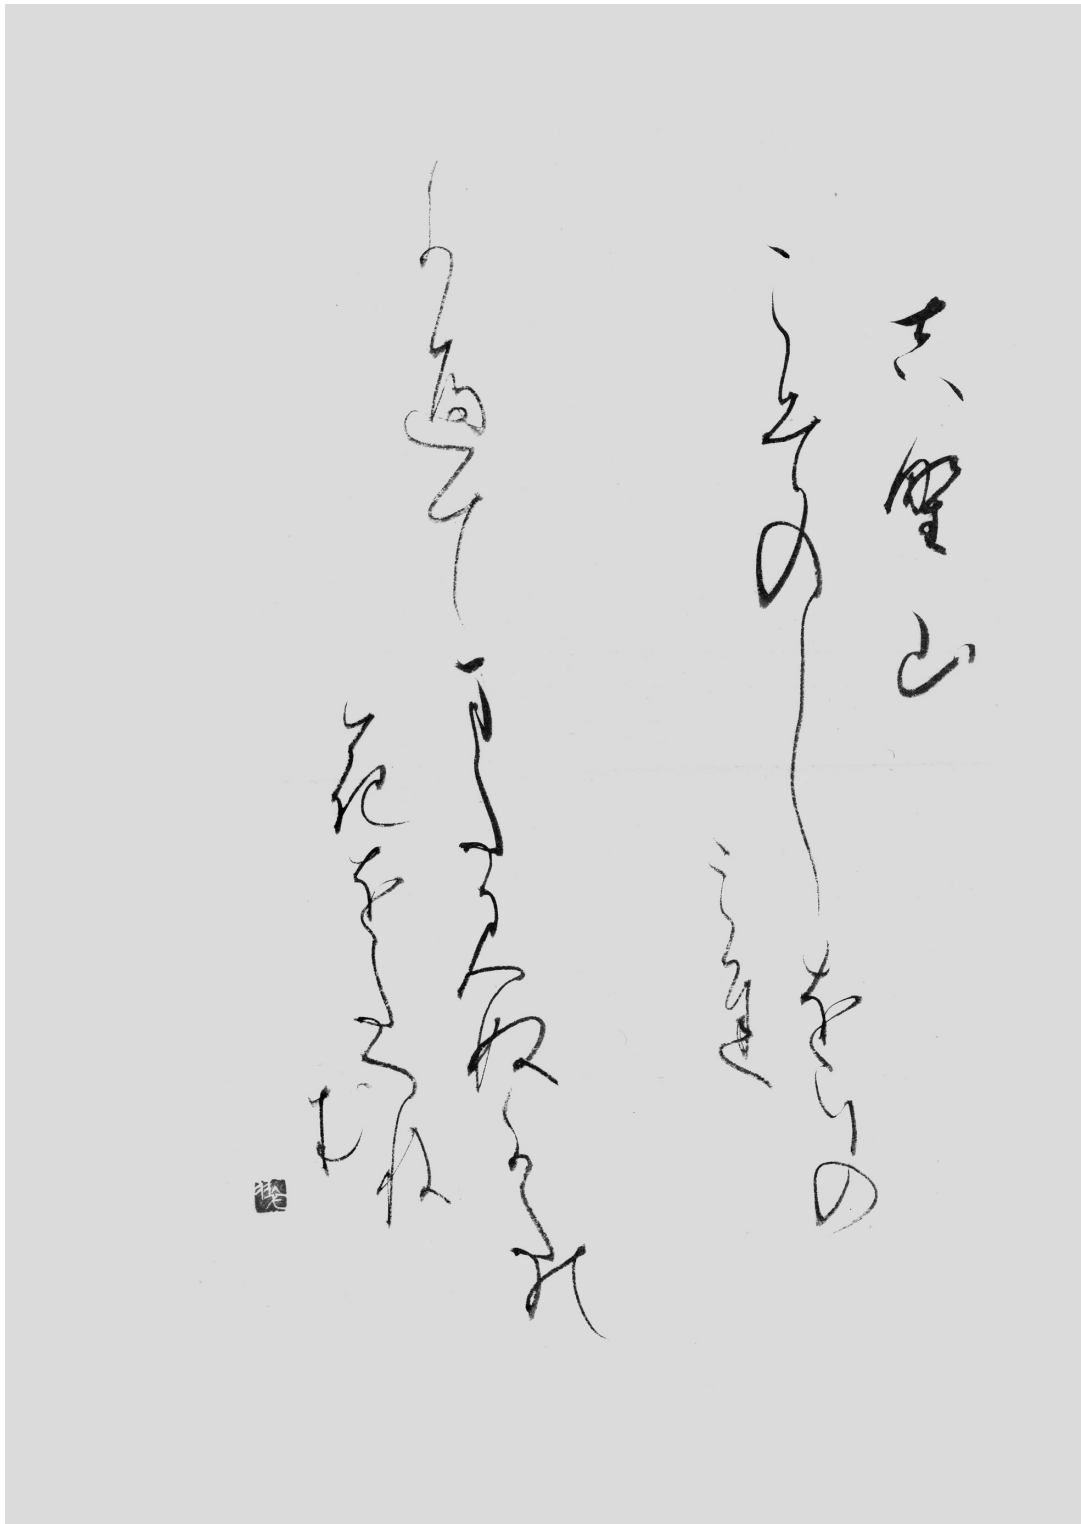 吉野山
こそのしをりの
みち
かへてまた見ぬかたの
花をたつね
む